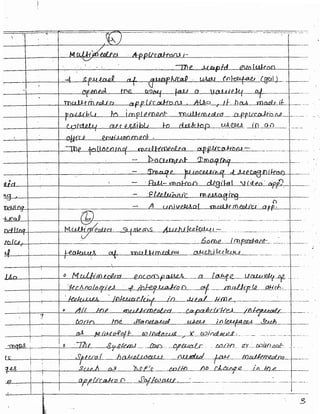 Multimedia Applications :-
The rapid evolution
& spread of graphical user interface (GUI)
opened the way for a variety of
multimedia applications. Also, it has made it
possible to implement multimedia applications
widely accessible to desktop users in an
office environment.
The following multimedia applications -
- Document Imaging
- Image processing & recognition
- Full-motion digital video appⁿ
- Electronic messaging
- A universal multimedia appⁿ
Multimedia Systems Architecture :-
Some important
features of multimedia architecture
o Multimedia encompasses a large variety of
technologies & integration of multiple arch-
itectures interacting in real time.
• All the multimedia capabilities integrate
with the standard user interfaces such
as Microsoft windows, X windows.
• The system can operate with or without
special hardware needed for multimedia
such as with no change in the
application software.
5